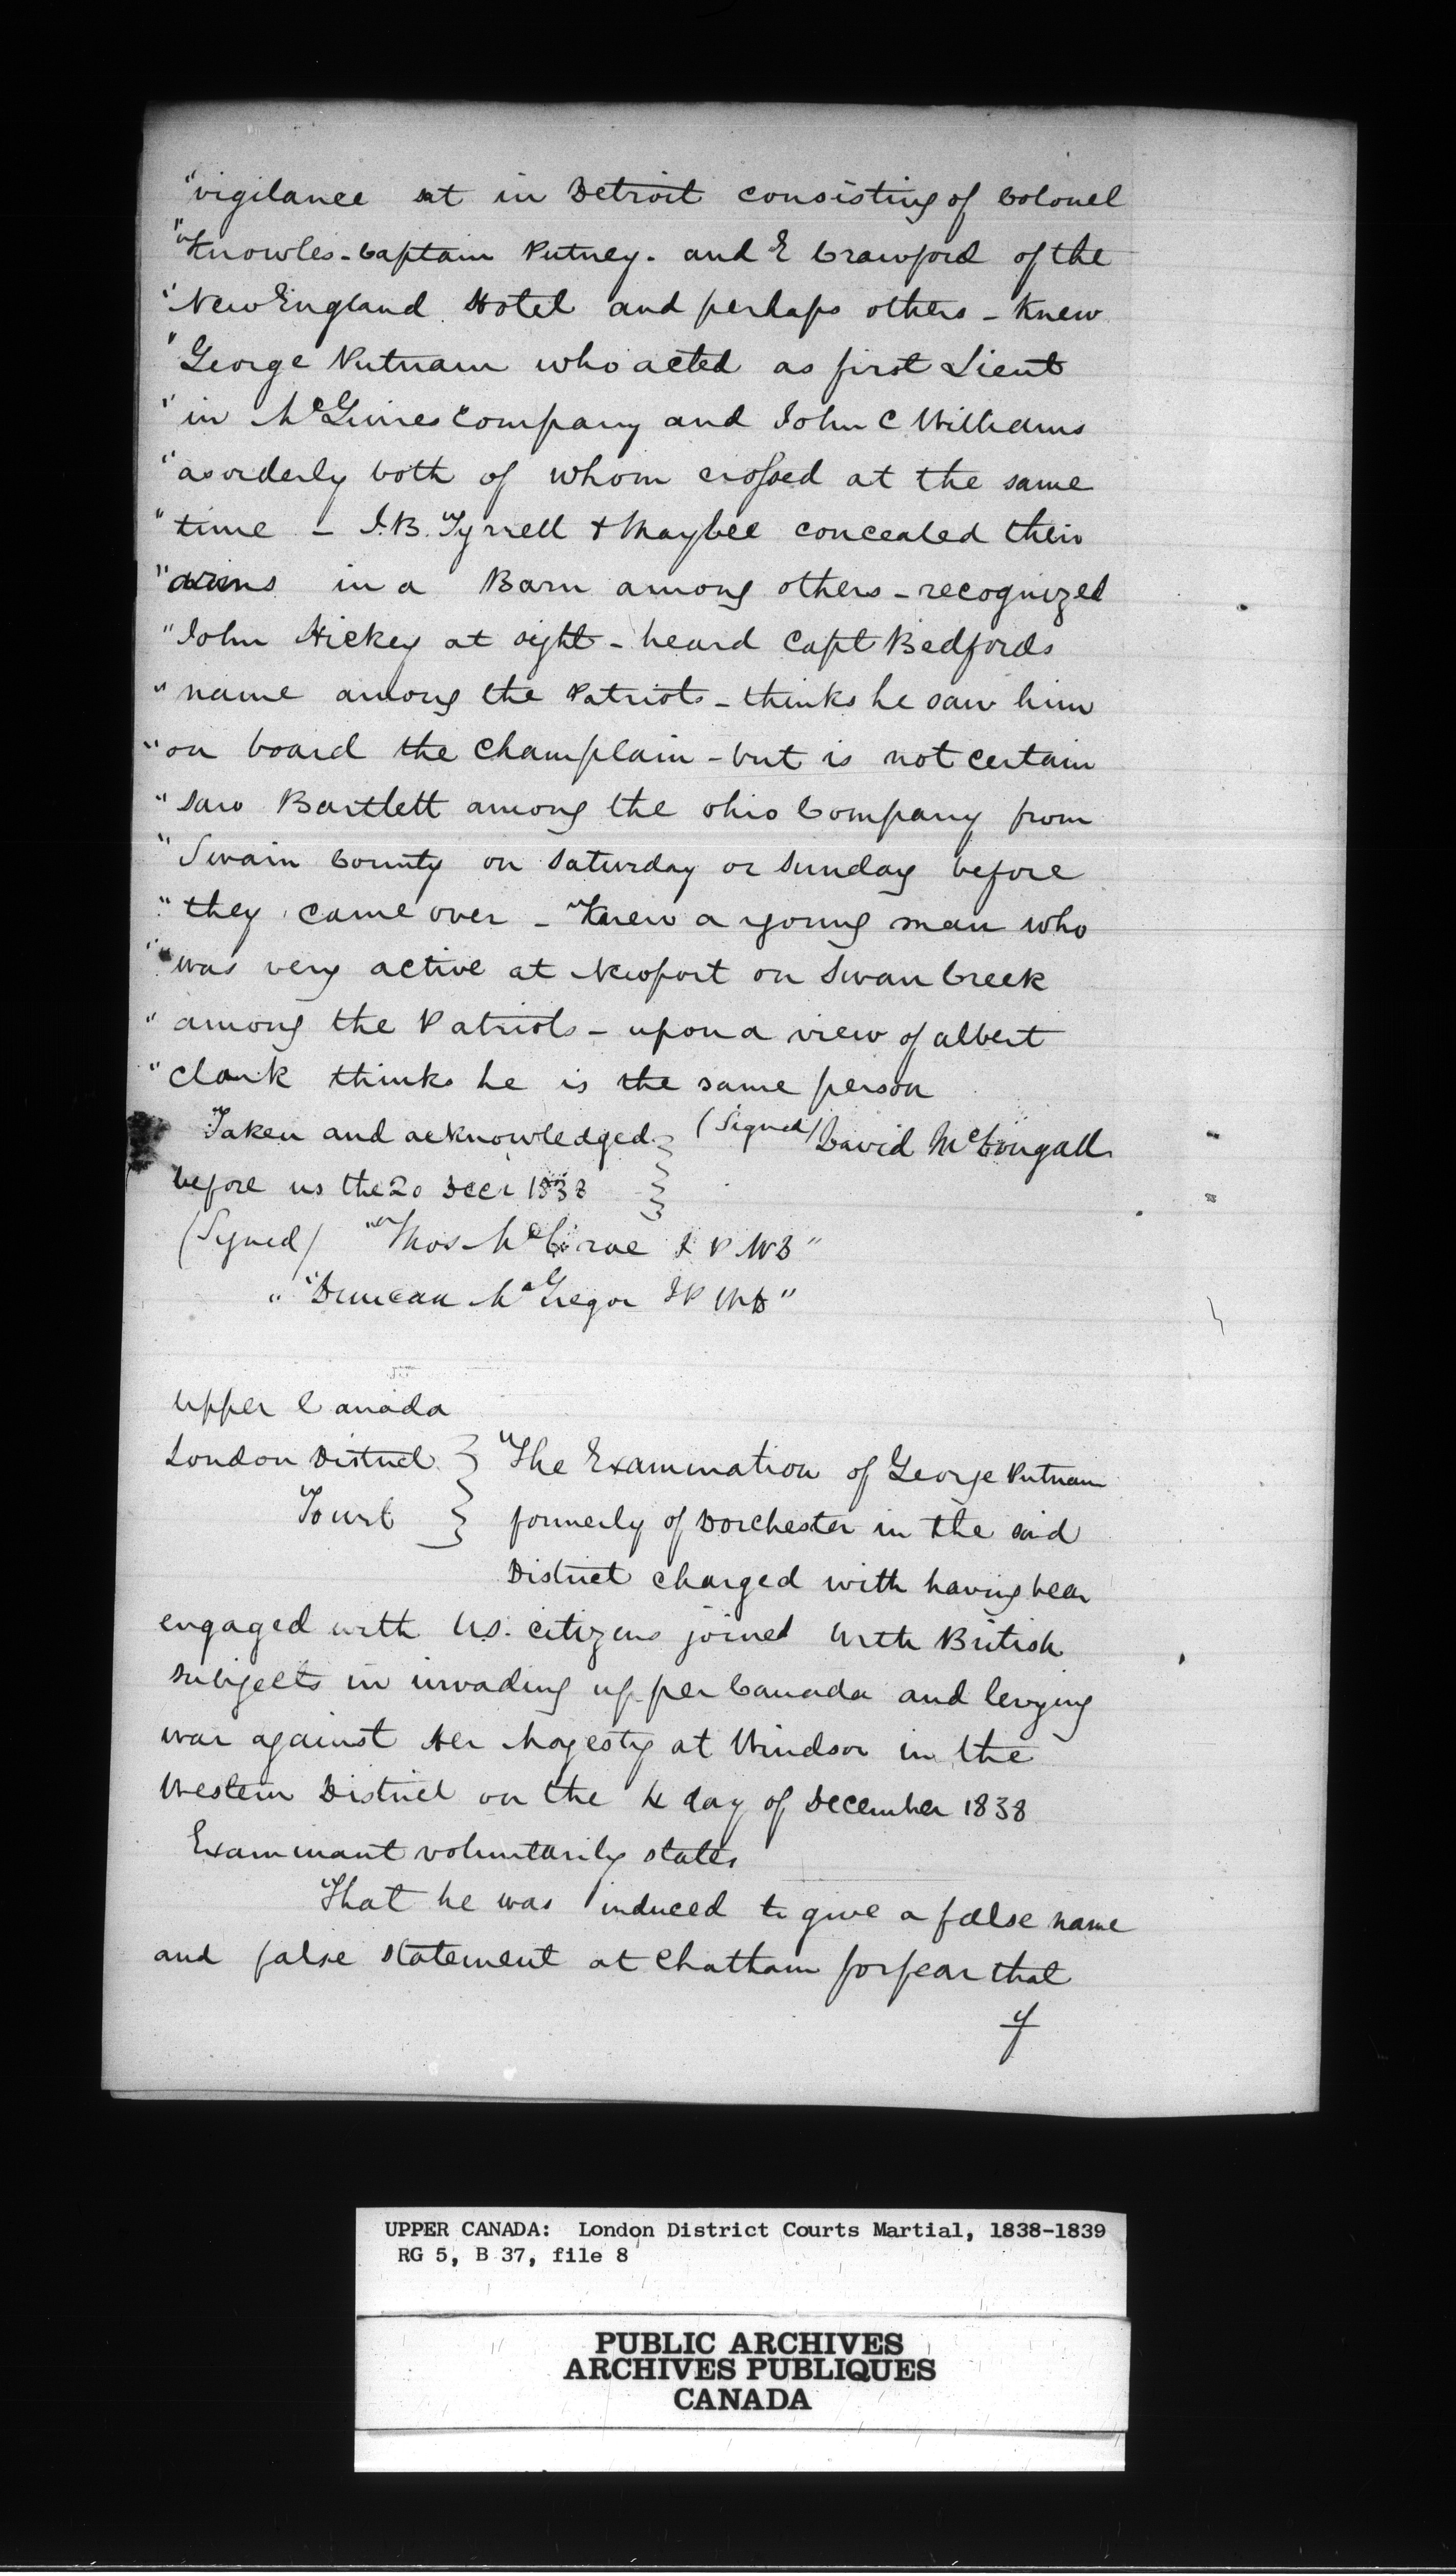 "vigilance sat in Detroit consisting of Colonel
"Knowles - Captain Putney. and E Crawford of the
"New England Hotel and perhaps others - Knew
"George Putnam who acted as first Lieut
"in McGuires Company and John C Williams
"as orderly both of whom crossed at the same
"time - J.B. Tyrrell & Maybee concealed their
"arms in a Barn among others - recognized
"John Hickey at sight - heard Capt Bedfords
"name among the Patriots - thinks he saw him
"on board the Champlain - but is not certain
"saw Bartlett among the ohio Company from
"Swain County on Saturday or Sunday before
"they came over - Knew a young man who
"was very active at Newport on Swan Creek
"among the Patriots - upon a view of albert
"Clark thinks he is the same person
Taken and acknowledged (Signed) David McDougall
before us the 20 Decr 1838
(Signed) "Thos McCrae J P WD"
" "Duncan McGregor JP WD"
Upper Canada
London District } "The Examination of George Putnam
To wit } formerly of Dorchester in the said
District charged with having been
engaged with U.S. citizens joined with British
subjects in invading upper Canada and levying
war against Her Majesty at Windsor in the
Western District on the 4 day of December 1838
Examinant voluntarily states
That he was induced to give a false name
and false statement at Chatham for fear that
UPPER CANADA: London District Courts Martial, 1838-1839
RG 5, B 37, file 8
PUBLIC ARCHIVES
ARCHIVES PUBLIQUES
CANADA